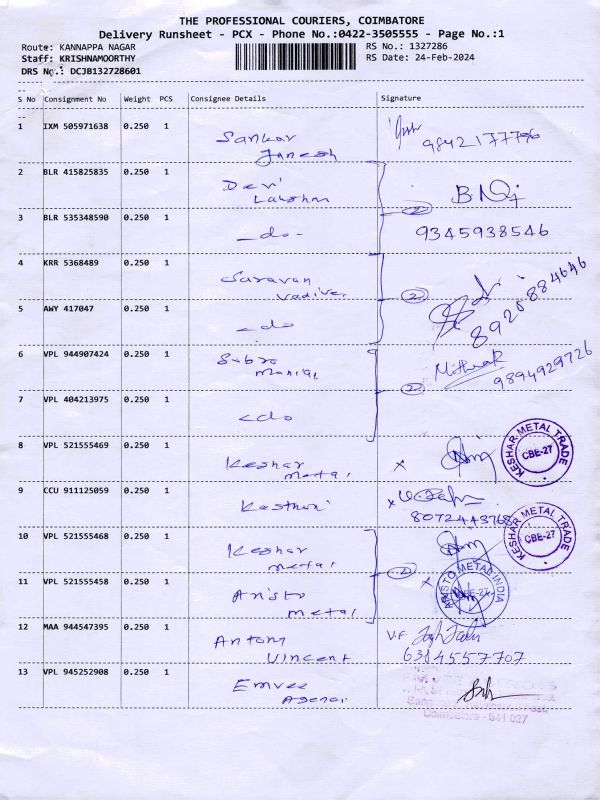 THE PROFESSIONAL COURIERS, COIMBATORE
Delivery Runsheet - PCX - Phone No.:0422-3505555 - Page No.:1
Route: KANNAPPA NAGAR
RS No.: 1327286
Staff: KRISHNAMOORTHY
RS Date: 24-Feb-2024
DRS No.: DCJB132728601
S No Consignment No Weight PCS Consignee Details Signature
1 IXM 505971638 0.250 1 Sankar
Ganesh 9842177796
2 BLR 415825835 0.250 1 Devi
Lakshmi
3 BLR 535348590 0.250 1 -do- 9345938546
4 KRR 5368489 0.250 1 Saravan
Vadivel 2 8925884646
5 AWY 417047 0.250 1 -do
6 VPL 944907424 0.250 1 Subra
Manial 2 9894929726
7 VPL 404213975 0.250 1 -do
8 VPL 521555469 0.250 1 Keshar
Metal x KESHAR METAL TRADE CBE-27
9 CCU 911125059 0.250 1 Kasthuri x
10 VPL 521555468 0.250 1 Keshar
Metal KESHAR METAL TRADE CBE-27
11 VPL 521555458 0.250 1 Aristo
Metal 2 x ARISTO METAL INDIA CBE-27
12 MAA 944547395 0.250 1 Antony
Vincent 6384557707
13 VPL 945252908 0.250 1 Emvee
Coimbatore - 641 027